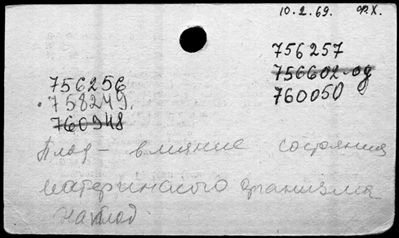 10.2.69. Ф.Х.
756257
756602-од
760050
756256
758249.
760948
Плод - влияние состояния
материнского организма
на плод